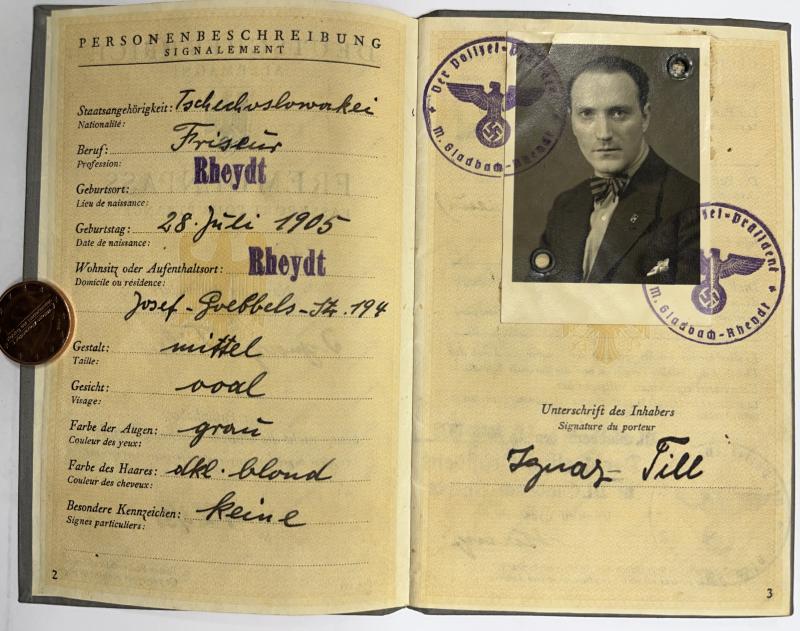 PERSONENBESCHREIBUNG
SIGNALEMENT
Staatsangehörigkeit: Tschechoslowakei
Nationalité:
Beruf: Friseur
Profession:
Rheydt
Geburtsort:
Lieu de naissance:
Geburtstag: 28. Juli 1905
Date de naissance:
Wohnsitz oder Aufenthaltsort: Rheydt
Domicile ou résidence:
Josef-Goebbels-Str. 194
Gestalt: mittel
Taille:
Gesicht: oval
Visage:
Farbe der Augen: grau
Couleur des yeux:
Farbe des Haares: dkl. blond
Couleur des cheveux:
Besondere Kennzeichen: keine
Signes particuliers:
2
Der Polizei-Präsident
M. Gladbach-Rheydt
Polizei-Präsident
M. Gladbach-Rheydt
Unterschrift des Inhabers
Signature du porteur
Ignaz Till
3